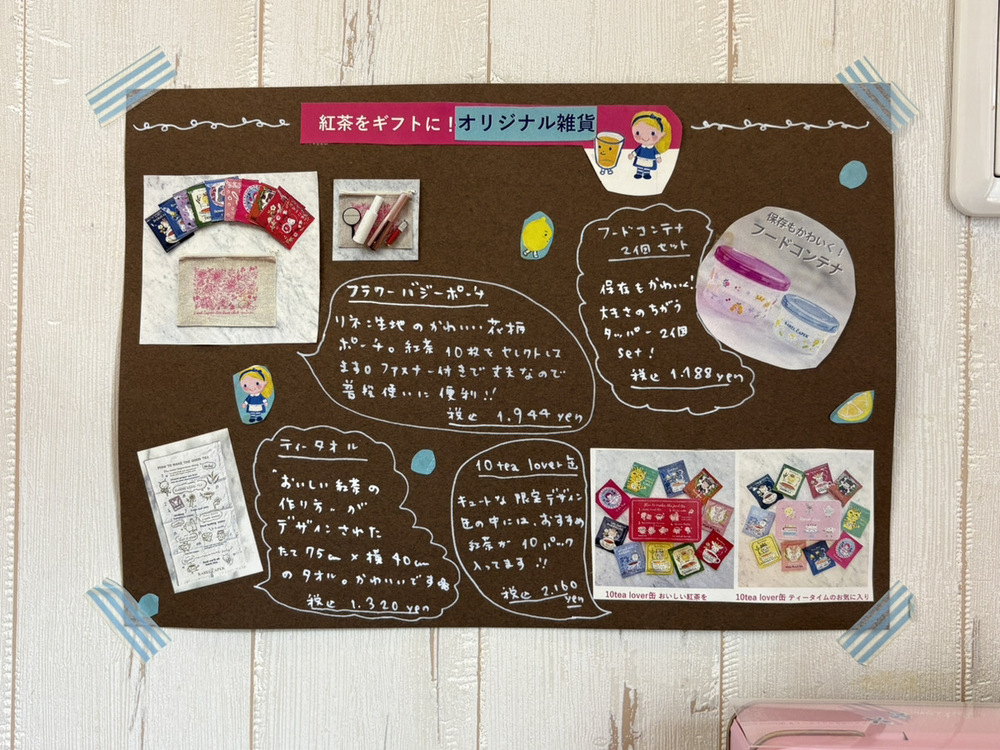 紅茶をギフトに！オリジナル雑貨
フラワーバジーポーチ
リネン生地のかわいい花柄
ポーチ。紅茶10枚をセレクトして
ます。ファスナー付きで丈夫なので
普段使いに便利!!
税込 1.944yen
フードコンテナ
2個セット
保存もかわいく!
大きさのちがう
タッパー2個
set!
税込 1.188yen
保存もかわいく！
フードコンテナ
ティータオル
"おいしい紅茶の
作り方"が
デザインされた
たて75cm×横40cm
のタオル。かわいいです
税込 1.320yen
10tea lover缶
キュートな限定デザイン
缶の中には、おすすめ
紅茶が10パック
入ってます!!
税込 2.160
yen
10tea lover缶 おいしい紅茶を
10tea lover缶 ティータイムのお気に入り
HOW TO MAKE THE GOOD TEA
KAREL CAPEK
KAREL CAPEK